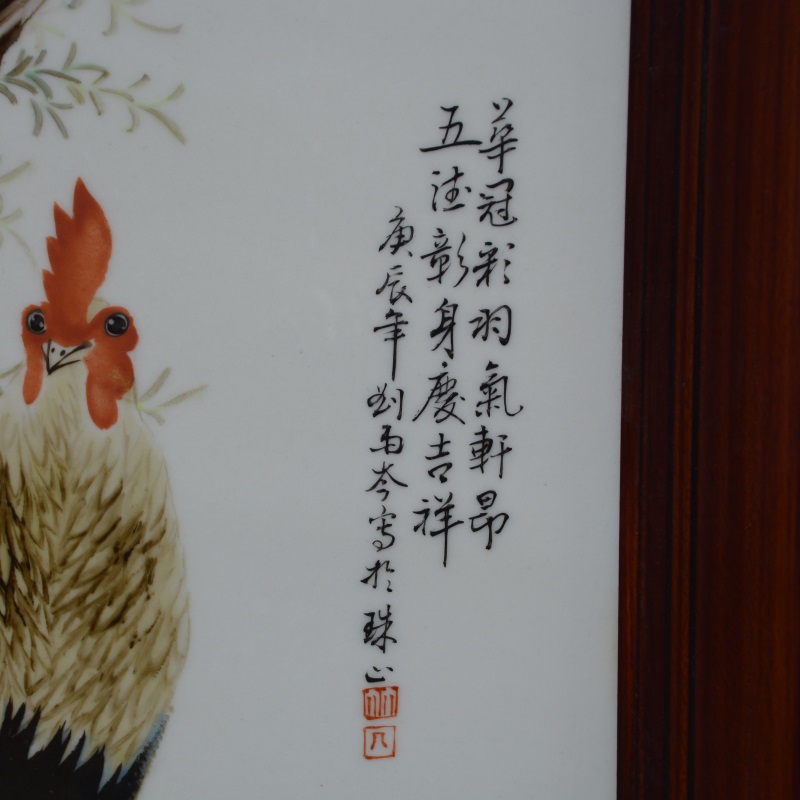 華冠彩羽氣軒昂
五德彰身慶吉祥
庚辰年劉雨岑寫於珠山